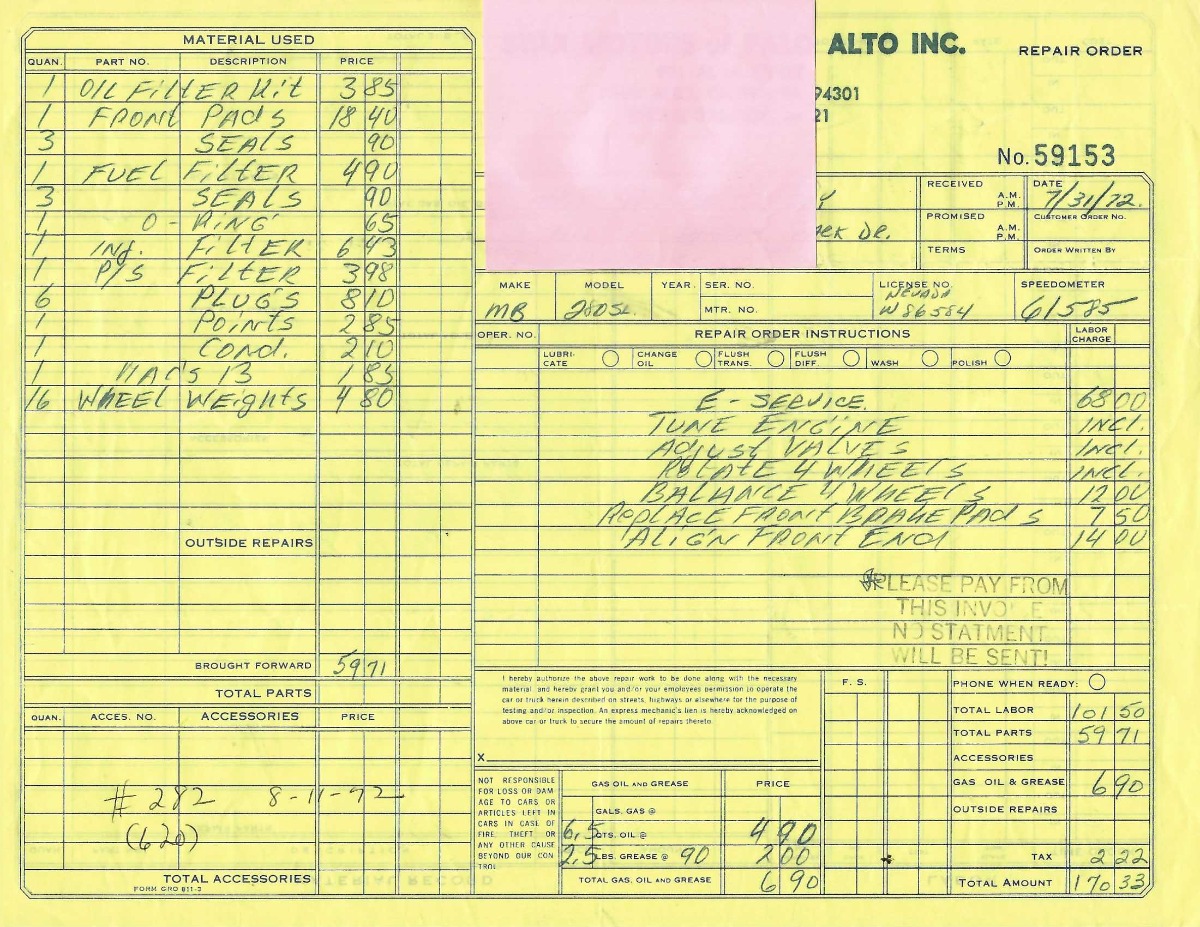 ALTO INC. REPAIR ORDER
94301
21
No. 59153
MATERIAL USED
QUAN. PART NO. DESCRIPTION PRICE
1 OIL FILTER Kit 3 85
1 FRONT PADS 18 40
3 SEALS 90
1 FUEL FILTER 4 90
3 SEALS 90
1 O-RING 65
1 Inj. FILTER 6 43
1 P/S FILTER 3 98
6 PLUG'S 8 10
1 POINTS 2 85
1 COND. 2 10
1 1 85
16 WHEEL WEIGHTS 4 80
OUTSIDE REPAIRS
BROUGHT FORWARD 59 71
TOTAL PARTS
QUAN. ACCES. NO. ACCESSORIES PRICE
# 282 8-11-72
(620)
TOTAL ACCESSORIES
FORM GRO 811-3
RECEIVED A.M. P.M. DATE 7/31/72.
PROMISED A.M. P.M. CUSTOMER ORDER NO.
DR.
TERMS ORDER WRITTEN BY
MAKE MODEL YEAR SER. NO. LICENSE NO. SPEEDOMETER
MB 280SL MTR. NO. NEVADA W86584 61585
OPER. NO. REPAIR ORDER INSTRUCTIONS LABOR CHARGE
LUBRICATE CHANGE OIL FLUSH TRANS. FLUSH DIFF. WASH POLISH
E-SERVICE 68 00
TUNE ENGINE INCL.
ADJUST VALVES INCL.
ROTATE 4 WHEELS INCL.
BALANCE 4 WHEELS 12 00
REPLACE FRONT BRAKE PADS 7 50
ALIGN FRONT END 14 00
PLEASE PAY FROM
THIS INVOICE
NO STATMENT
WILL BE SENT!
I hereby authorize the above repair work to be done along with the necessary
material, and hereby grant you and/or your employees permission to operate the
car or truck herein described on streets, highways or elsewhere for the purpose of
testing and/or inspection. An express mechanic's lien is hereby acknowledged on
above car or truck to secure the amount of repairs thereto.
X
NOT RESPONSIBLE
FOR LOSS OR DAM
AGE TO CARS OR
ARTICLES LEFT IN
CARS IN CASE OF
FIRE THEFT OR
ANY OTHER CAUSE
BEYOND OUR CON
TROL
GAS OIL AND GREASE PRICE
GALS. GAS @
6,5 QTS. OIL @ 4 90
2,5 LBS. GREASE @ 90 2 00
TOTAL GAS, OIL AND GREASE 6 90
F. S. PHONE WHEN READY:
TOTAL LABOR 101 50
TOTAL PARTS 59 71
ACCESSORIES
GAS OIL & GREASE 6 90
OUTSIDE REPAIRS
TAX 2 22
TOTAL AMOUNT 170 33